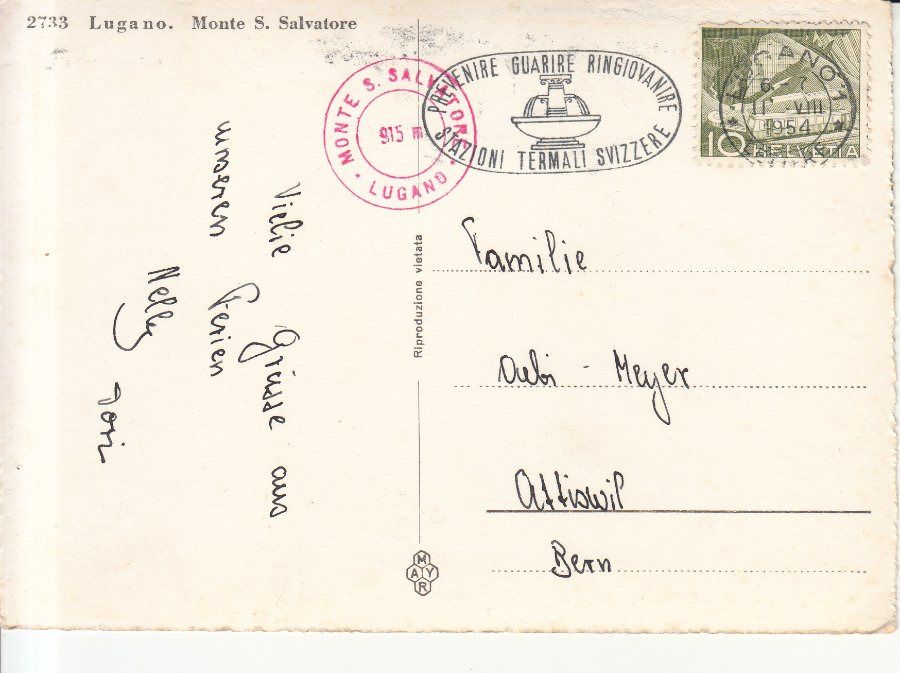 2733 Lugano. Monte S. Salvatore
MONTE S. SALVATORE
915 m
LUGANO
PREVENIRE GUARIRE RINGIOVANIRE
STAZIONI TERMALI SVIZZERE
ASCANO 1
11 VIII
1954
10 HELVETIA
Vielie Grüsse aus
unseren Ferien
Nelly
Riproduzione vietata
Familie
Aebi - Meyer
Attiswil
Bern
MAYR